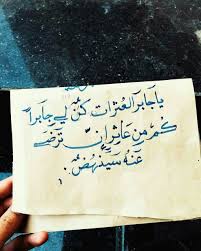 يا جابر العثرات كن لي جابراً
كم من عاثر إن ترضَ
عنه سينهض